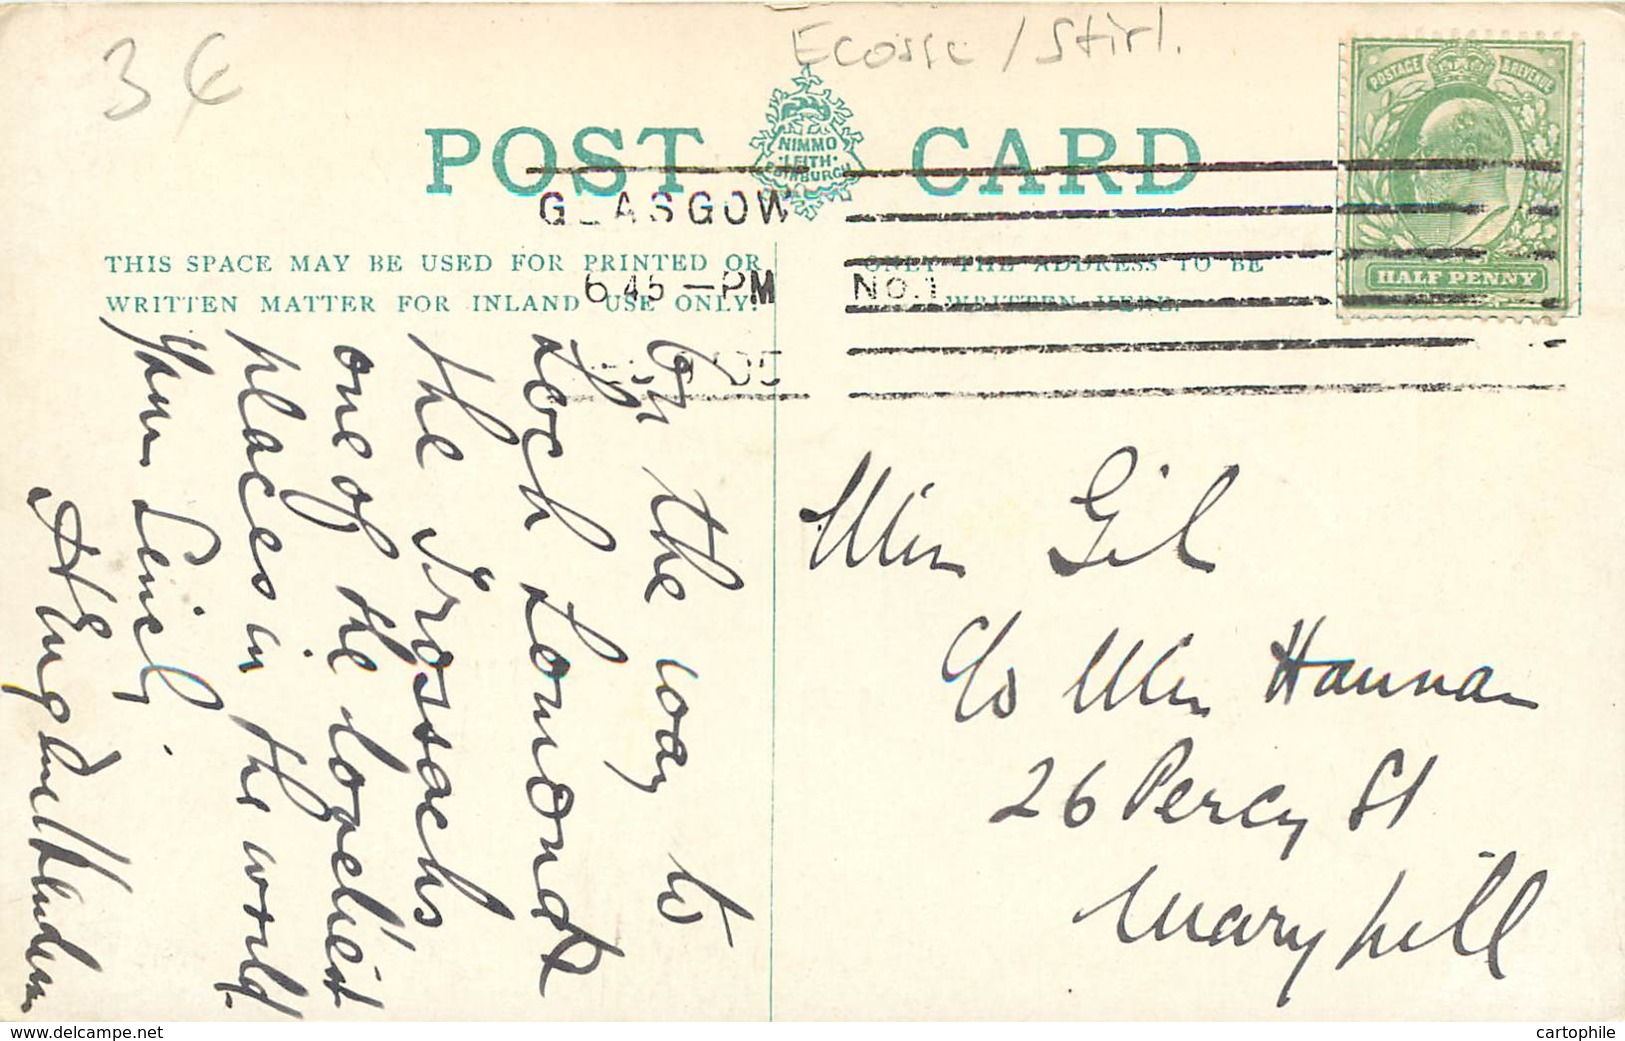 3€
Ecosse / Stirl.
POST CARD
NIMMO
LEITH
EDINBURGH
POSTAGE & REVENUE
HALF PENNY
GLASGOW
6.45 - PM
No. 1
05
THIS SPACE MAY BE USED FOR PRINTED OR
WRITTEN MATTER FOR INLAND USE ONLY.
ONLY THE ADDRESS TO BE
WRITTEN HERE.
On the way to
Loch Lomond &
the Trossachs
one of the loveliest
places in the world.
Yours
Miss Gil
C/o Miss Hannan
26 Percy St
Maryhill
www.delcampe.net
cartophile